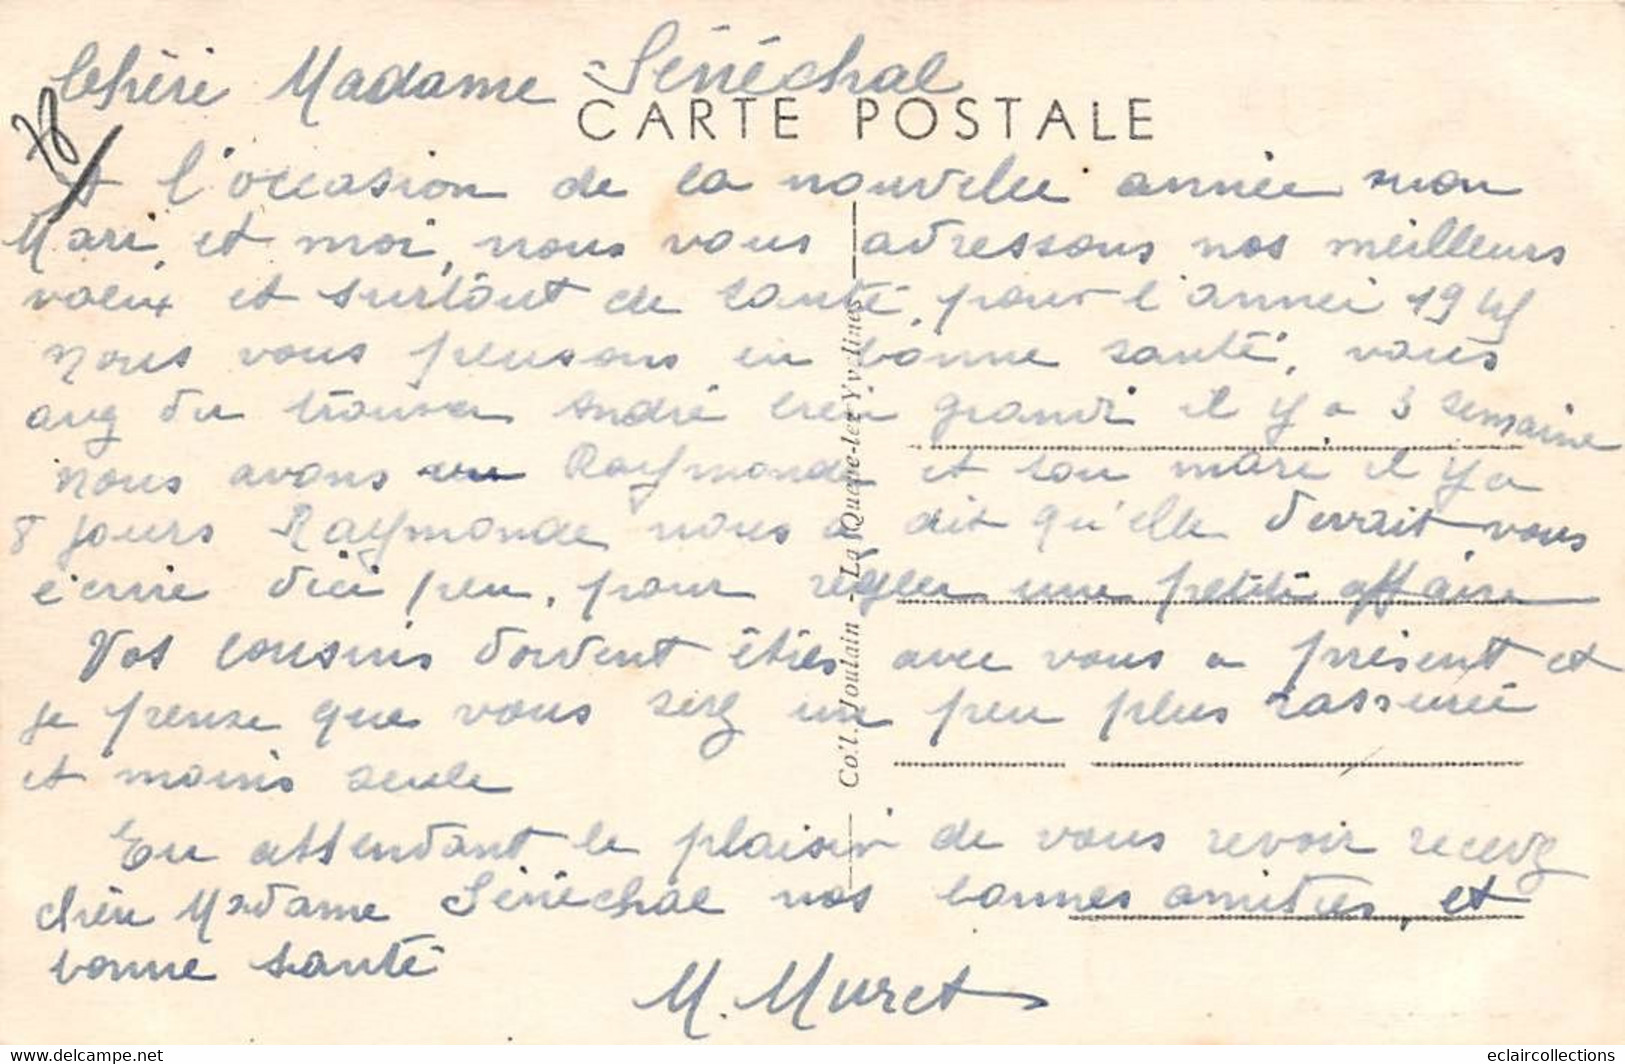 Chère Madame Sénéchal
CARTE POSTALE
78
A l'occasion de la nouvelle année mon
Mari, et moi, nous vous adressons nos meilleurs
voeux et surtout de santé, pour l'année 19
nous vous pensons en bonne santé, vous
avez du trouver André bien grandi il y a 3 semaine
nous avons vu Raymonde et son mari il y a
8 jours Raymonde nous a dit qu'elle devait vous
écrire dici peu, pour régler une petite affaire
Vos cousins doivent êtres avec vous a présent et
je pense que vous serez un peu plus rassurée
et moins seule
En attendant le plaisir de vous revoir recevez
chère Madame Sénéchal nos bonnes amitiés, et
bonne santé
M. Muret
Coll. Joulain - La Queue-lez-Yvelines
eclaircollections